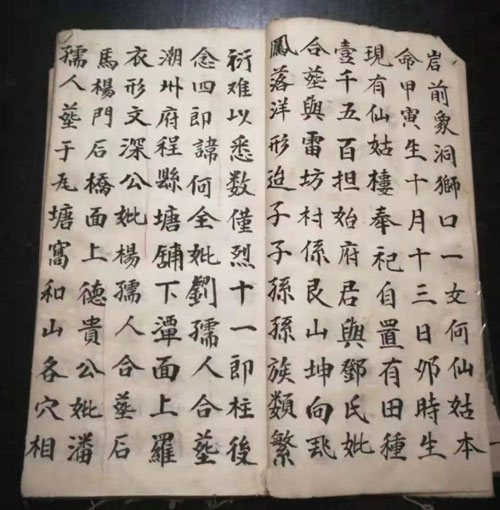 岩前象洞獅口一女何仙姑本
命甲寅生十月十三日夘時生
現有仙姑樓奉祀自置有田種
壹千五百担始府君與鄧氏妣
合塟與雷坊村係艮山坤向飛
鳳落洋形迨子子孫孫族類繁
衍难以悉数僅烈十一即柱後
念四即諱何全妣劉孺人合塟
潮州府程縣塘舖下潭面上羅
衣形文深公妣楊孺人合塟石
馬楊門石橋面上德貴公妣潘
孺人塟于瓦塘窩和山各穴相